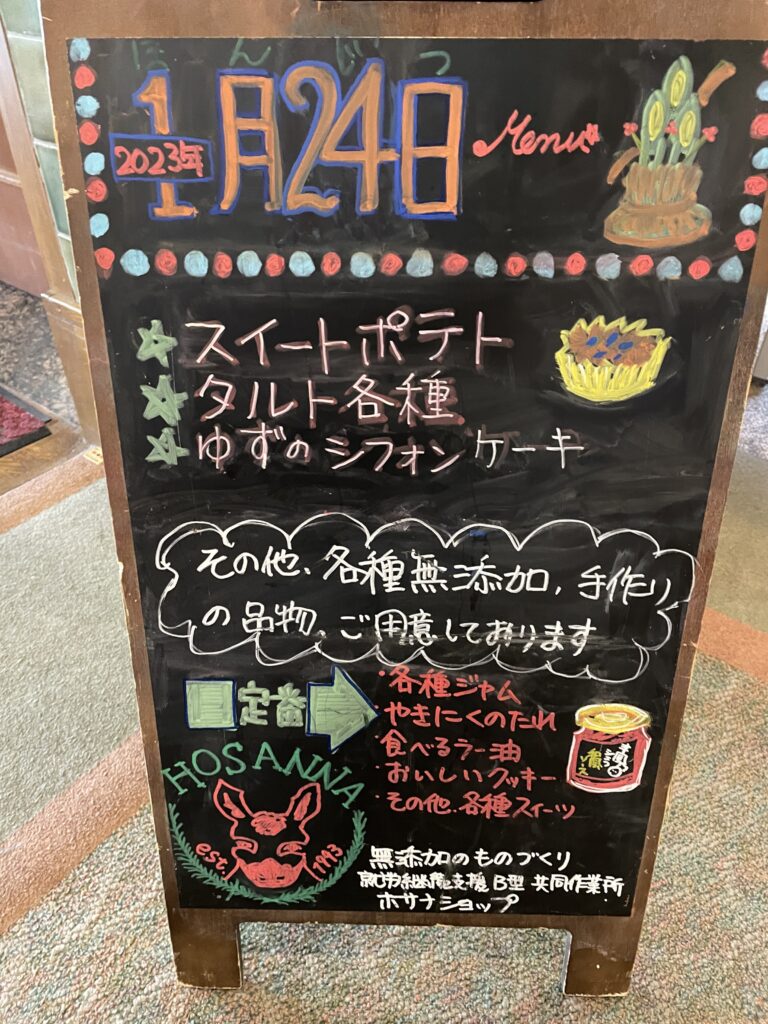 ほんじつ
2023年
1月24日 Menu
スイートポテト
タルト各種
ゆずのシフォンケーキ
その他、各種無添加、手作り
の品物、ご用意しております
定番
・各種ジャム
・やきにくのたれ
・食べるラー油
・おいしいクッキー
・その他、各種スィーツ
HOSANNA
est. 1993
無添加のものづくり
就労継続支援B型 共同作業所
ホサナショップ